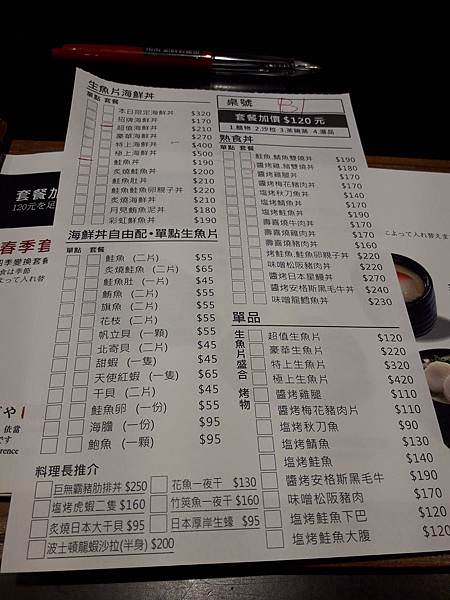 生魚片海鮮丼
單點 套餐
本日限定海鮮丼 $320
招牌海鮮丼 $170
超值海鮮丼 $210
豪華海鮮丼 $270
特上海鮮丼 $400
極上海鮮丼 $500
鮭魚丼 $190
炙燒鮭魚丼 $200
鮭魚肚丼 $210
鮭魚鮭魚卵親子丼 $220
炙燒海鮮丼 $210
月見鮪魚泥丼 $180
彩虹鮮魚丼 $190
海鮮丼自由配•單點生魚片
單點 套餐
鮭魚 (二片) $55
炙燒鮭魚 (二片) $65
鮭魚肚 (一片) $45
鮪魚 (二片) $55
旗魚 (二片) $55
花枝 (二片) $55
帆立貝 (一顆) $55
北寄貝 (二片) $45
甜蝦 (一隻) $55
天使紅蝦 (一隻) $65
干貝 (二片) $45
鮭魚卵 (一份) $55
海膽 (一份) $95
鮑魚 (一顆) $95
料理長推介
巨無霸豬肋排丼 $250
花魚一夜干 $130
塩烤虎蝦二隻 $160
竹筴魚一夜干 $160
炙燒日本大干貝 $95
日本厚岸生蠔 $95
波士頓龍蝦沙拉(半身) $200
桌號 B1
套餐加價 $120 元
1.麵物 2.沙拉 3.茶碗蒸 4.湯品
熟食丼
單點 套餐
鮭魚,鯖魚雙燒丼 $190
醬烤雞,豬雙燒丼 $180
醬烤雞腿丼 $170
醬烤梅花豬肉丼 $170
塩烤秋刀魚丼 $140
塩烤鯖魚丼 $170
塩烤鮭魚丼 $190
壽喜燒牛肉丼 $170
壽喜燒雞肉丼 $160
壽喜燒豬肉丼 $160
烤鮭魚,鮭魚卵親子丼 $220
味噌松阪豬肉丼 $220
醬烤日本星鰻丼 $270
醬烤安格斯黑毛牛丼 $240
味噌龍鱈魚丼 $230
單品
生魚片盛合
超值生魚片 $120
豪華生魚片 $220
特上生魚片 $320
極上生魚片 $420
烤物
醬烤雞腿 $110
醬烤梅花豬肉片 $110
塩烤秋刀魚 $90
塩烤鯖魚 $130
塩烤鮭魚 $130
醬烤安格斯黑毛牛 $190
味噌松阪豬肉 $170
塩烤鮭魚下巴 $120
塩烤鮭魚大腹 $120
套餐加
120元を足
春季套
四季變換套餐
食は季節
よって入れ替
によって入れ替えま